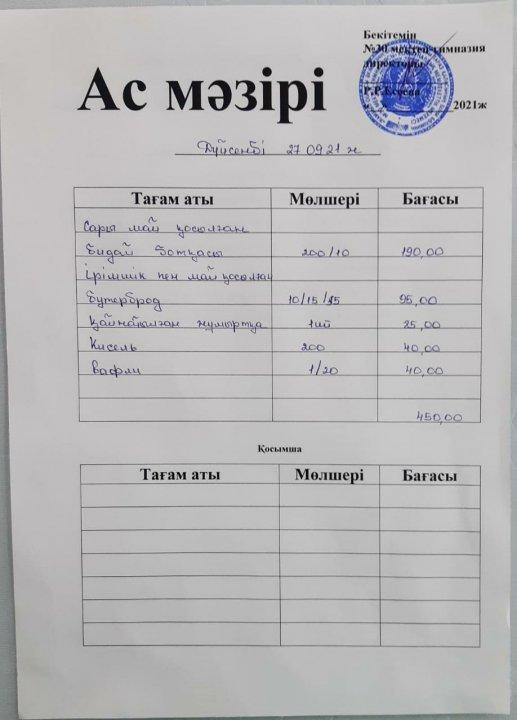 Бекітемін
№30 мектеп-гимназия
директоры
2021ж
Ас мәзірі
Дүйсенбі 27 09 21 ж
Тағам аты Мөлшері Бағасы
Сары май қосылған
бидай ботқасы 200/10 190,00
Ірімшік пен май қосылған
бутерброд 10/15/15 95,00
Қайнатылған жұмыртқа 1ш 25,00
Кисель 200 40,00
вафли 1/20 40,00
450,00
Қосымша
Тағам аты Мөлшері Бағасы